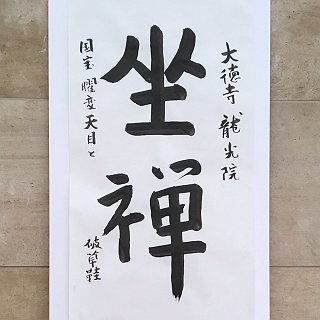 大徳寺 龍光院
坐禅
国宝 曜変天目と
破草鞋